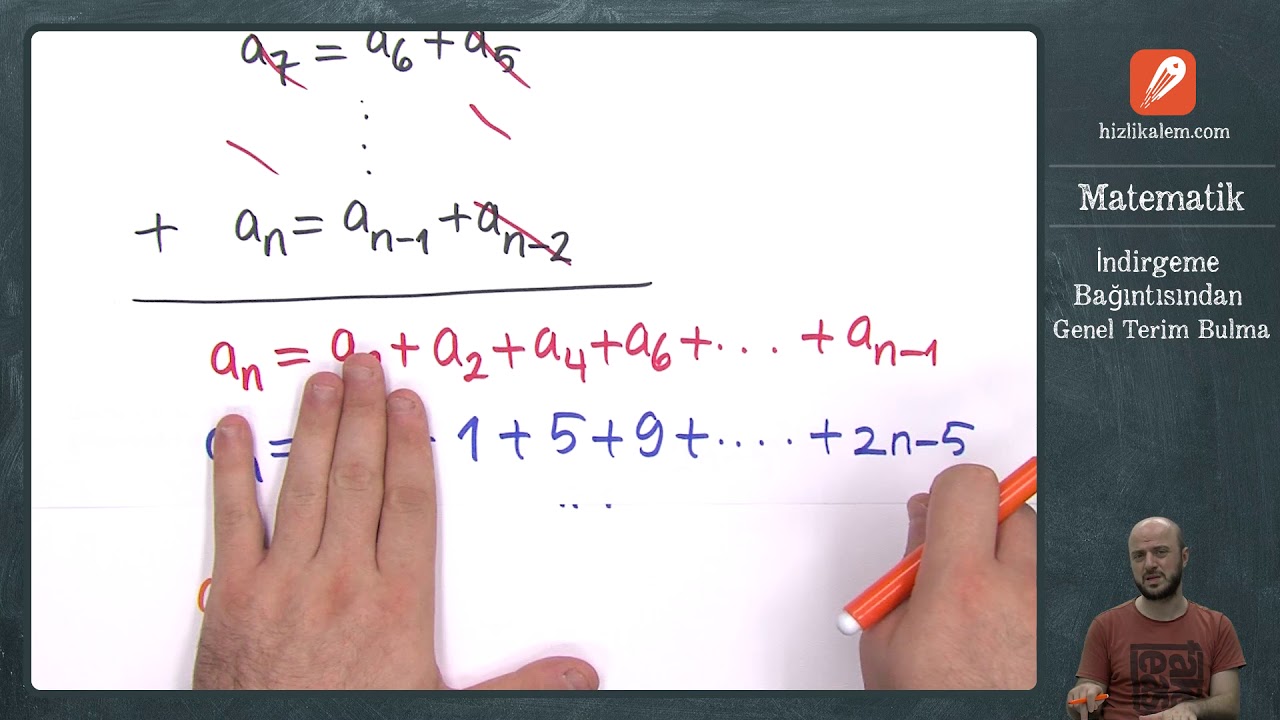 a₇ = a₆ + a₅
⋮
+ aₙ = aₙ₋₁ + aₙ₋₂
aₙ = + a₂ + a₄ + a₆ + .... + aₙ₋₁
1 + 5 + 9 + .... + 2n-5
hizlikalem.com
Matematik
İndirgeme
Bağıntısından
Genel Terim Bulma